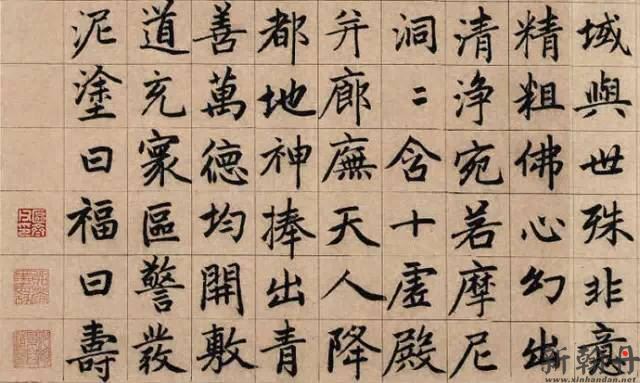 域與世殊非意
精粗佛心幻出
清浄宛若摩尼
洞〻含十虛殿
并廊廡天人降
都地神捧出青
善萬德均開敷
道充寰區警發
泥塗曰福曰壽
www.xinhandan.net